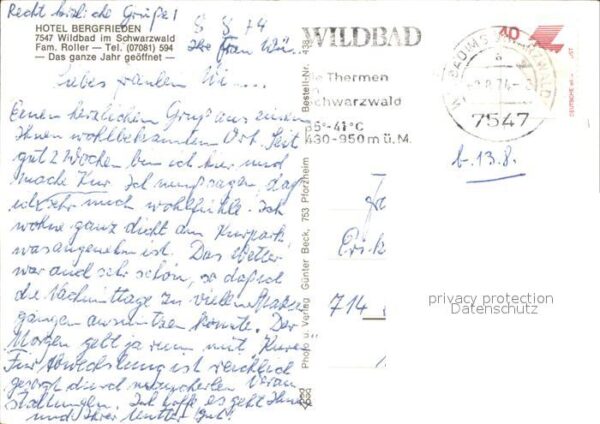 Recht herzliche Grüße!
HOTEL BERGFRIEDEN
7547 Wildbad im Schwarzwald
Fam. Roller — Tel. (07081) 594
— Das ganze Jahr geöffnet —
8 8 74
Ihre Frau
liebes Fräulein
Einen herzlichen Gruß aus einem
Ihnen wohlbekannten Ort. Seit
gut 2 Wochen bin ich hier und
mache Kur. Ich muß sagen, daß
ich sehr mich wohlfühle. Ich
wohne ganz dicht am Kurpark,
was angenehm ist. Das Wetter
war auch sehr schön, so daß ich
die Nachmittage zu vielen Spazier
gängen ausnützen konnte. Der
Morgen geht ja rum mit Kuren
Für Abwechslung ist reichlich
gesorgt durch Veran
staltungen. Ich hoffe es geht Ihnen
und Ihrer Mutter gut!
Bestell-Nr. 438
Photo u. Verlag Günter Beck, 753 Pforzheim
WILDBAD
Thermen
Schwarzwald
35°-41°C
430-950 m ü. M.
40
DEUTSCHE BUNDESPOST
WILDBAD IM SCHWARZWALD
a
8.74
7547
b. 13.8.
Erik
714
privacy protection
Datenschutz